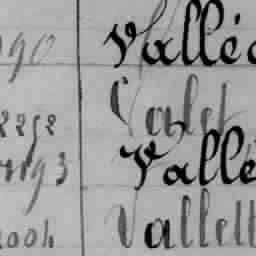 90 Vallé
2292 Valet
93 Vallé
004 Vallett